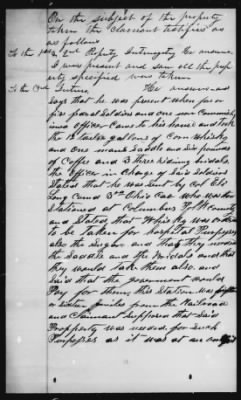 On the subject of the property
taken the Claimant testified as
as follows
To the 1st & 2nd Property Interrogatory He answered
I was present and saw all the pro
perty specified was taken
To the 3rd He answered
says that he was present when four or
five federal Soldiers and one non Commiss
ioned officer Came to his house and took
the 13 gallons of Corn whisky
and one man's Saddle and Six pounds
of Coffee and 3 three riding bridles
the officer in Charge of Said Soldiers
Stated that he was sent by Col Eli
Long Comd 3rd Ohio Cav who was then
Stationed at Columbus Polk County
and Stated that Whisky was ordered
to be Taken for hospital Purposes
also the Sugar and that they needed
the Saddle and the bridals and that
they would take them also and
Said that the government would
Pay for them this Station was fifteen
or Sixteen miles from the Railroad
and Claimant Supposed that Said
Property was needed for Such
Purposes as it was at an